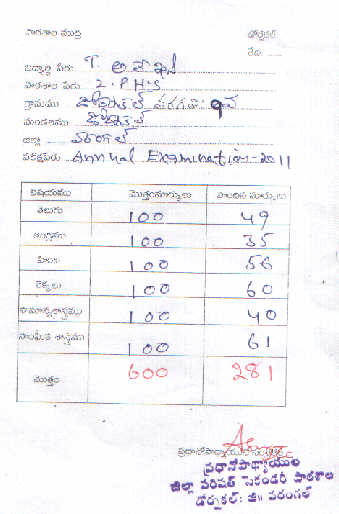 పాఠశాల ముద్ర డోర్నకల్
తేది
విద్యార్థి పేరు T.
పాఠశాల పేరు Z.P.H.S
గ్రామము
మండలము
జిల్లా వరంగల్
పరీక్షపేరు Annual Examination-2011
విషయము మొత్తంమార్కులు పొందిన మార్కులు
తెలుగు 100 49
ఇంగ్లీషు 100 35
హింది 100 56
లెక్కలు 100 60
సామాన్యశాస్త్రము 100 40
సాంఘీక శాస్త్రము 100 61
మొత్తం 600 281
ప్రధానోపాధ్యాయుల
జిల్లా పరిషత్ సెకండరీ పాఠశాల
డోర్నకల్: జి॥ వరంగల్